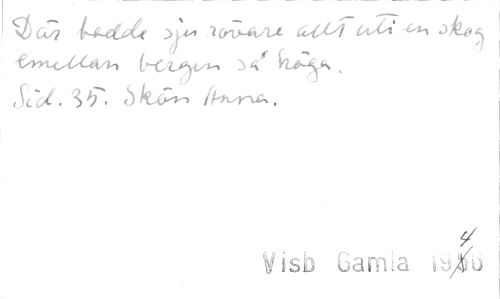 Där bodde sju rövare allt uti en skog
emellan bergen så höga.
Sid. 35. Skön Anna.
Visb Gamla 1946